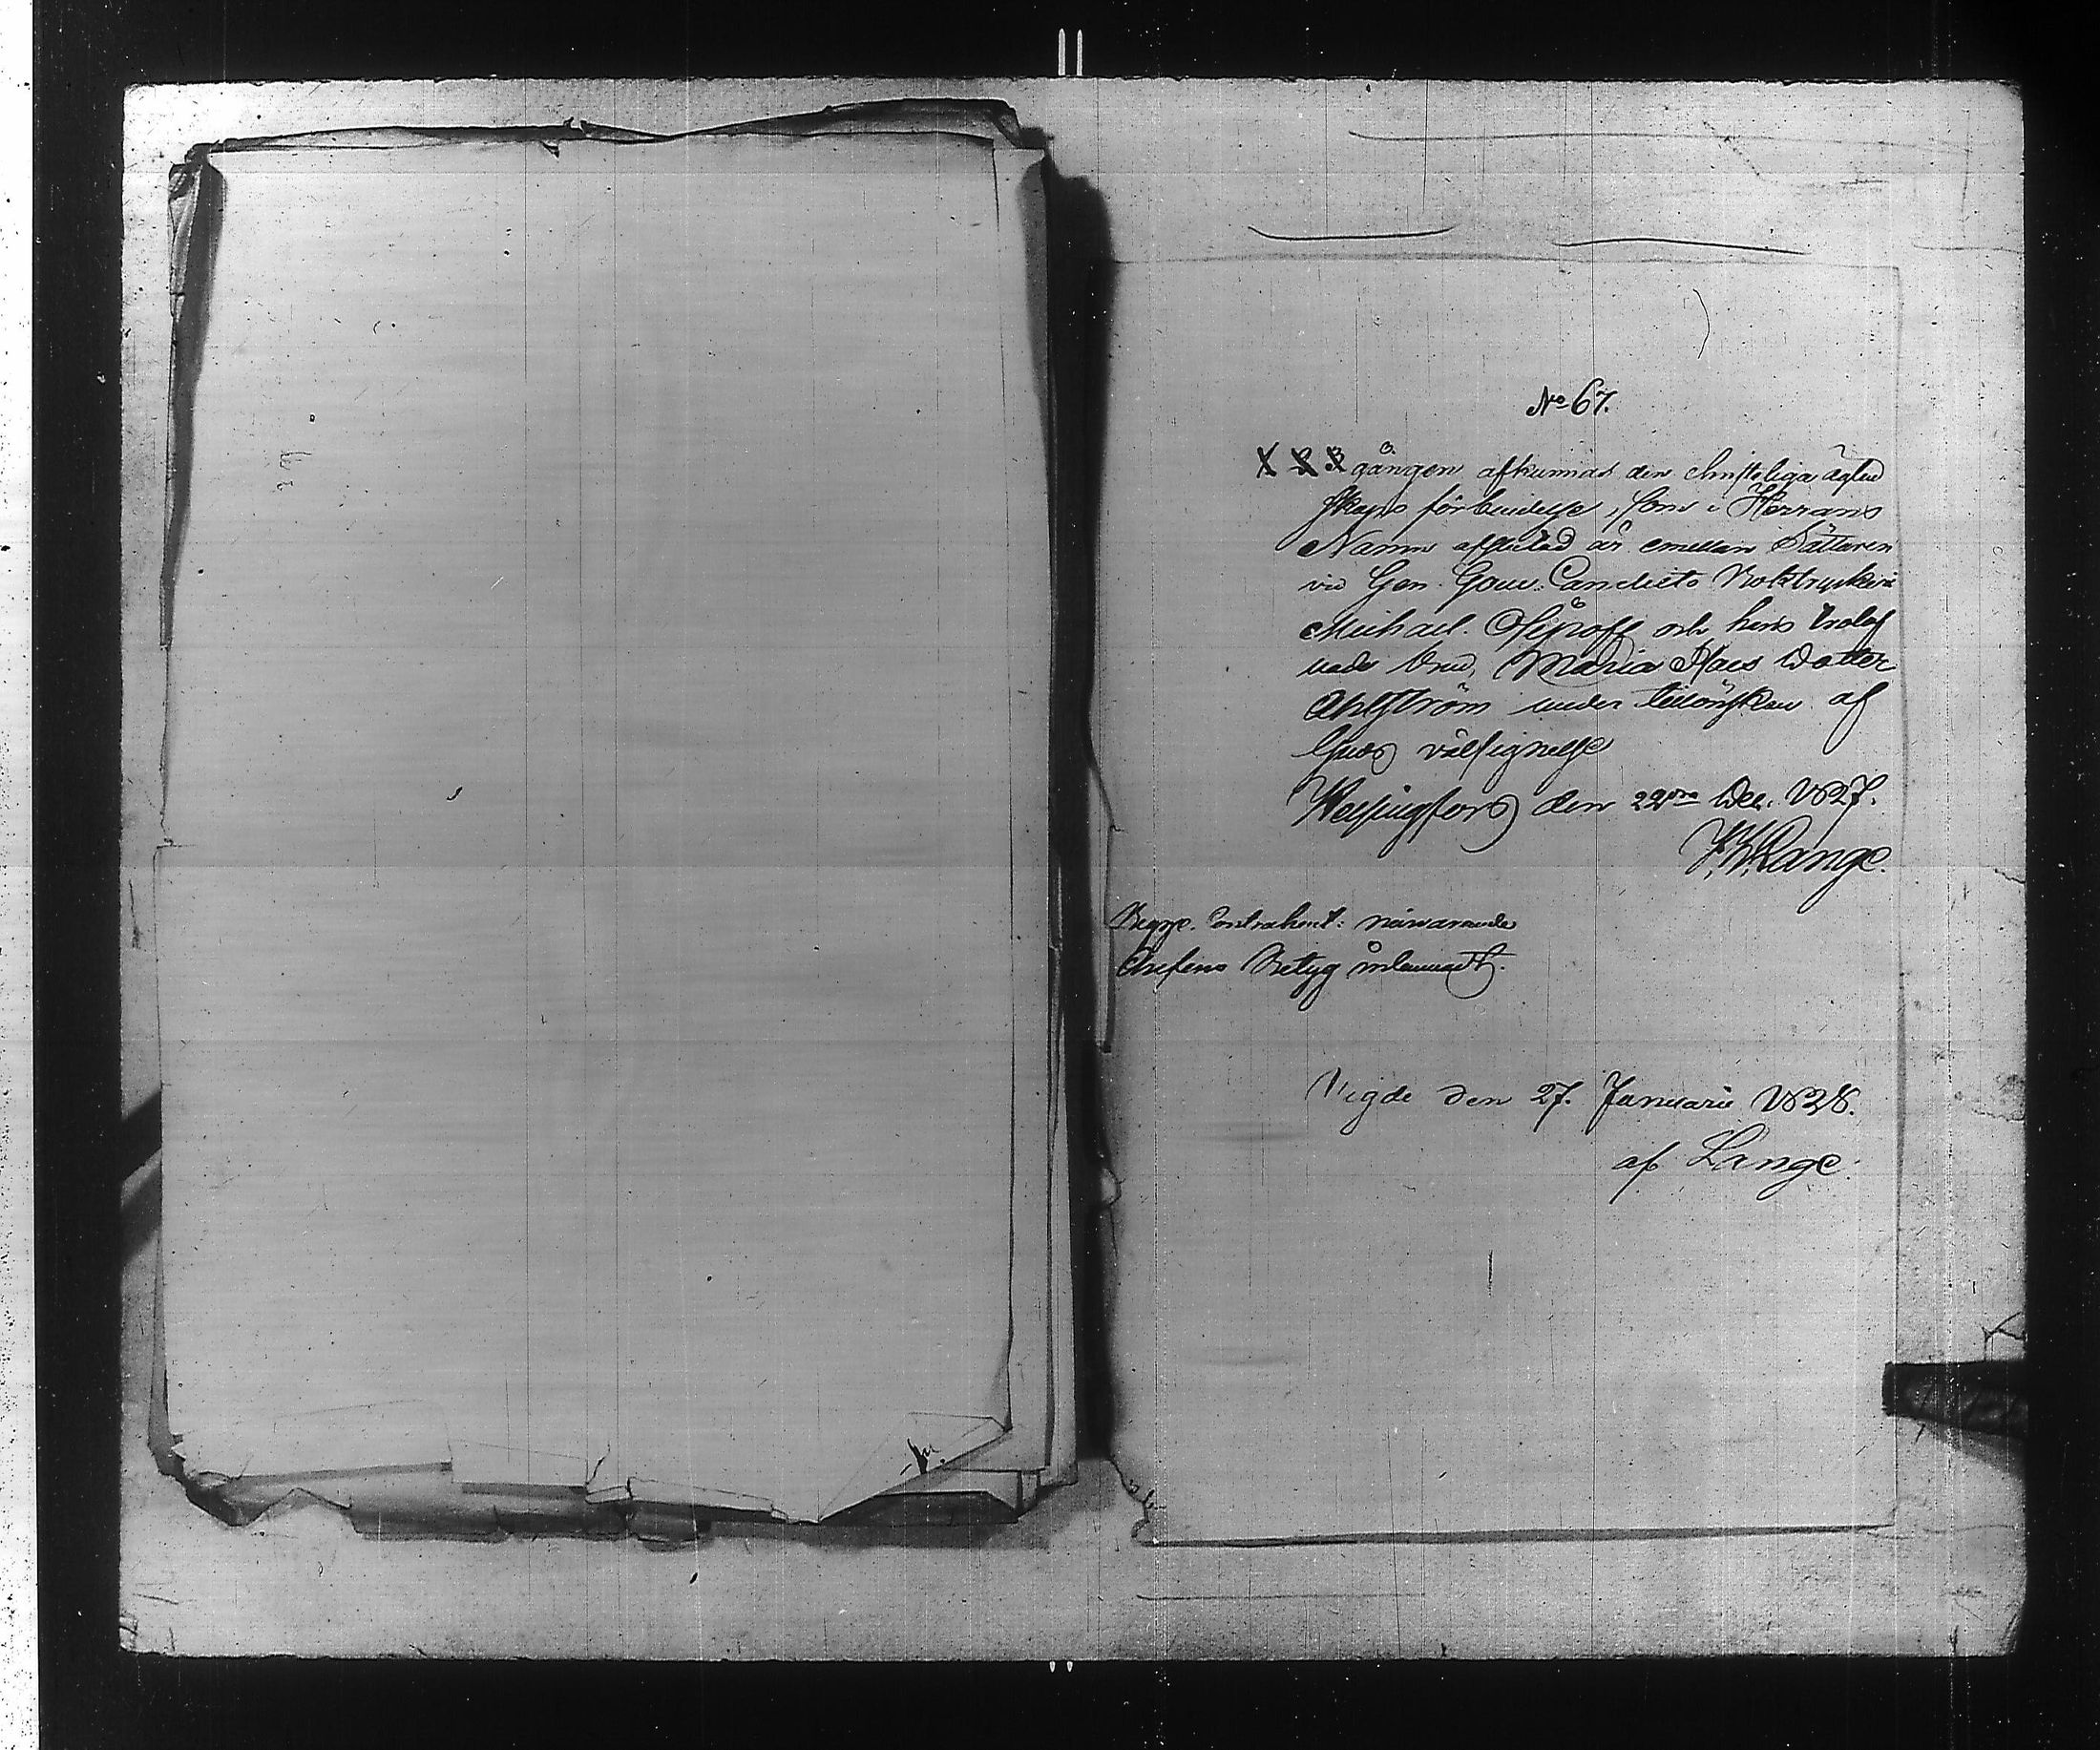 No 67.
1 2 3 gången afkunnas den christeliga ägten
skaps förbindelse, som i Herrans
Namn afslutad är emellan Sättaren
vid Gen. Gouv. Cancliets Boktryckeri
Michael och hans trolof
vade Brud, Maria Claes Dotter
Ahlström under tillönskan af
Guds välsignelse
Helsingfors den 22dra Dec. 1827.
Lange.
Begge Contrahent: närvarande
Chefens Betyg inlemnadt.
Vigde den 27. Januarii 1828.
af Lange.